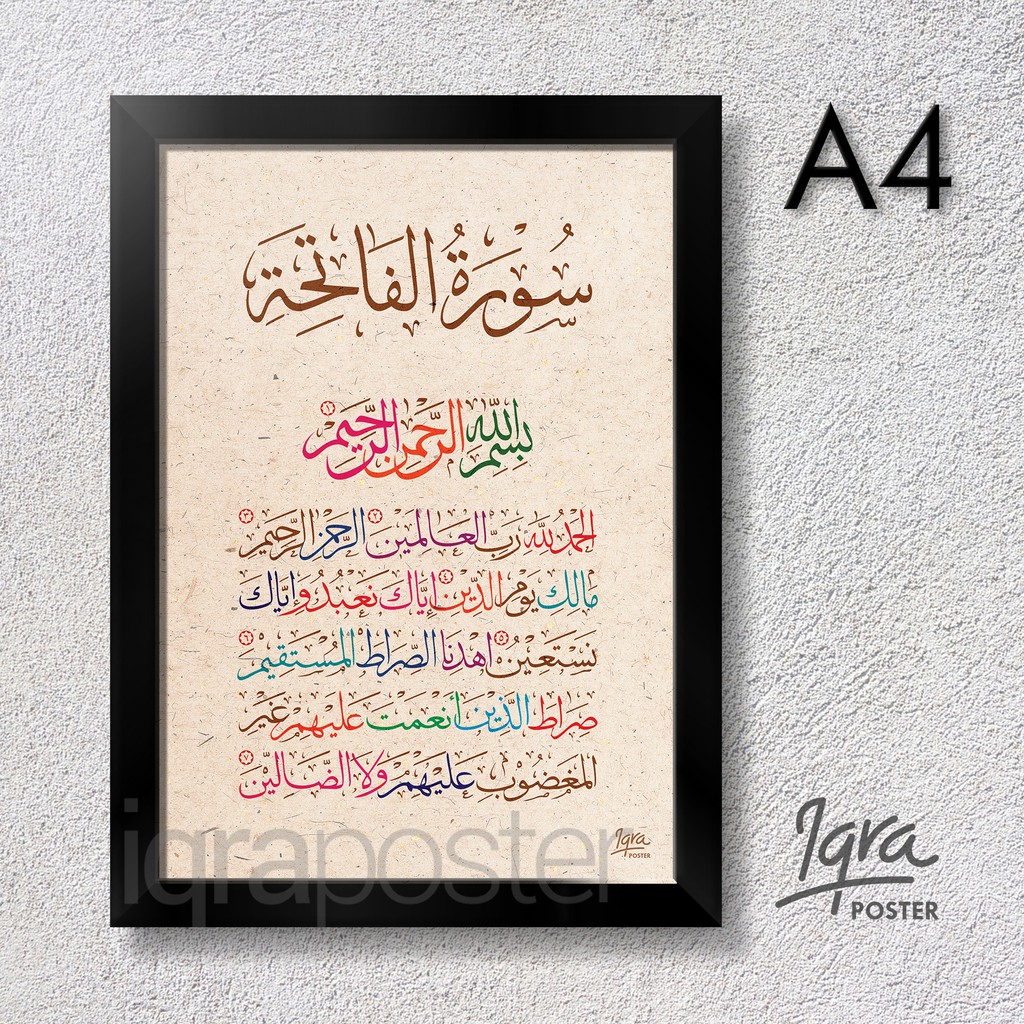 A4
سُورَةُ الفَاتِحَةِ
بِسْمِ اللّٰهِ الرَّحْمٰنِ الرَّحِيْمِ ١
الحَمْدُ لِلّٰهِ رَبِّ العَالَمِيْنَ ٢ الرَّحْمٰنِ الرَّحِيْمِ ٣
مَالِكِ يَوْمِ الدِّيْنِ ٤ إِيَّاكَ نَعْبُدُ وَإِيَّاكَ
نَسْتَعِيْنُ ٥ اهْدِنَا الصِّرَاطَ المُسْتَقِيْمَ ٦
صِرَاطَ الَّذِيْنَ أَنْعَمْتَ عَلَيْهِمْ غَيْرِ
المَغْضُوْبِ عَلَيْهِمْ وَلَا الضَّالِّيْنَ ٧
Iqra
POSTER
iqraposter
Iqra
POSTER